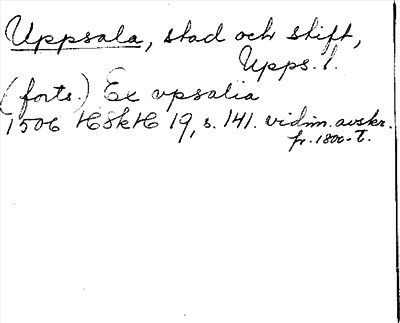 Uppsala, stad och stift,
Upps. l.
(forts.) Ex vpsalia
1506 HSkH 19, s. 141. vidim. avskr.
fr. 1800-t.